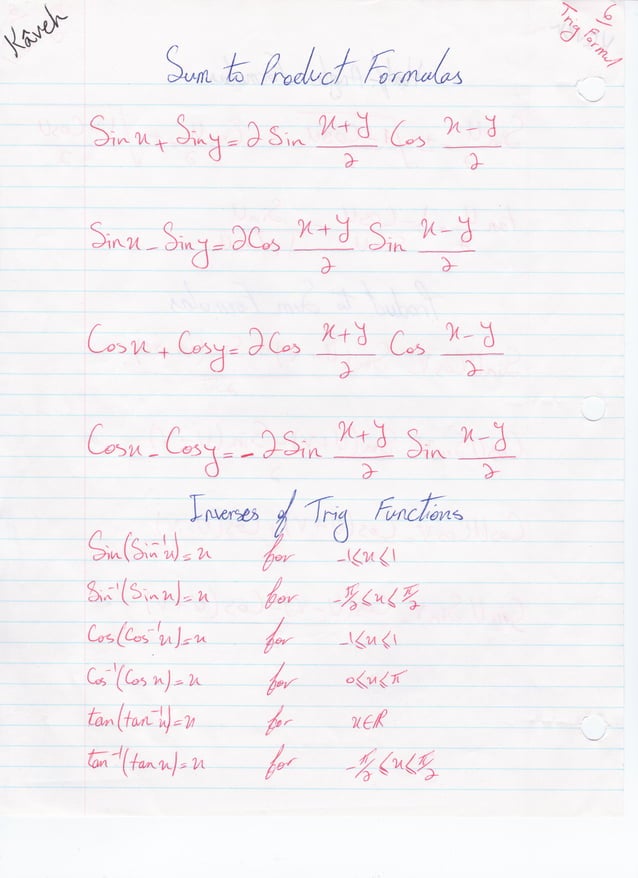 Kâveh
6
Trig Formul
Sum to Product Formulas
Sin x + Sin y = 2 Sin (x+y)/2 Cos (x-y)/2
Sin x - Sin y = 2 Cos (x+y)/2 Sin (x-y)/2
Cos x + Cos y = 2 Cos (x+y)/2 Cos (x-y)/2
Cos x - Cos y = - 2 Sin (x+y)/2 Sin (x-y)/2
Inverses of Trig Functions
Sin(Sin⁻¹x) = x for -1≤x≤1
Sin⁻¹(Sin x) = x for -π/2≤x≤π/2
Cos(Cos⁻¹x) = x for -1≤x≤1
Cos⁻¹(Cos x) = x for 0≤x≤π
tan(tan⁻¹x) = x for x∈R
tan⁻¹(tan x) = x for -π/2≤x≤π/2